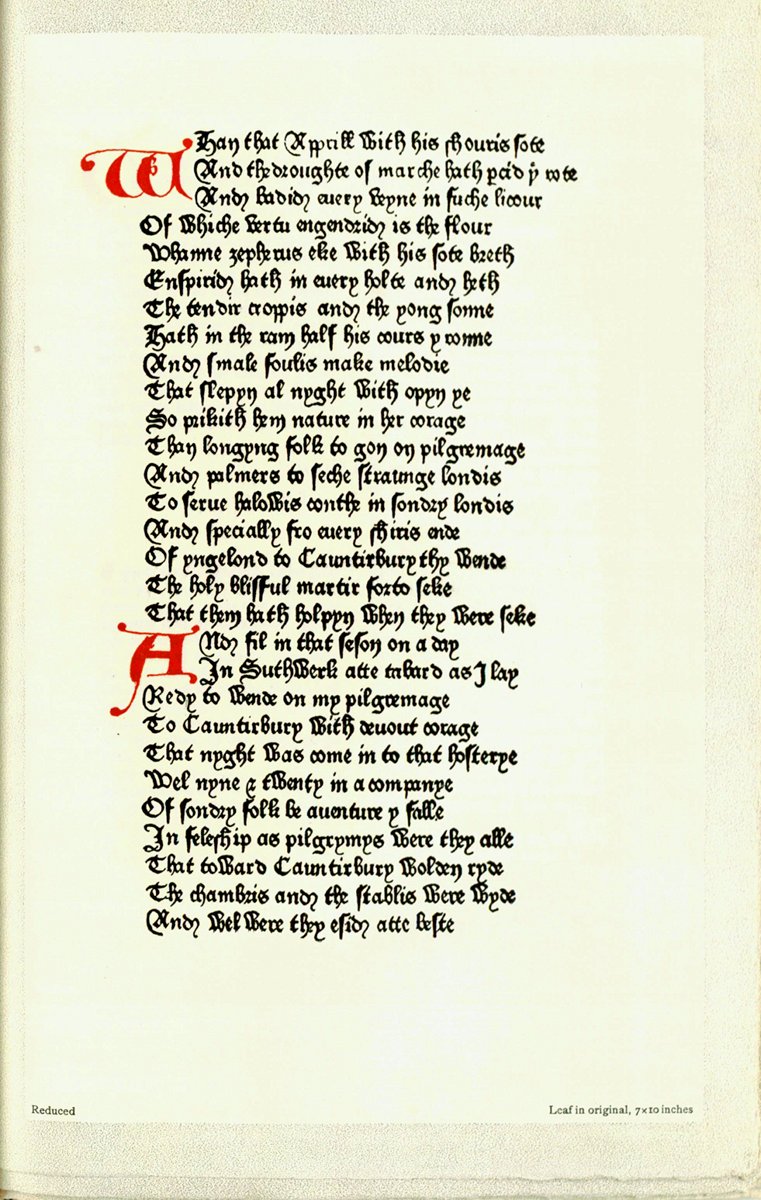 WHan that Apprill with his shouris sote
And the droughte of marche hath percid þe rote
And badid euery veyne in suche licour
Of whiche vertu engendrid is the flour
Whanne zepherus eke with his sote breth
Enspirid hath in euery holte and heth
The tendir croppis and the yong sonne
Hath in the ram half his cours y ronne
And smale foulis make melodie
That slepyn al nyght with opyn ye
So prikith hem nature in her corage
Than longyng folk to gon on pilgremage
And palmers to seche straunge londis
To serue halowis couthe in sondry londis
And specially fro euery shiris ende
Of yngelond to Cauntirbury thy wende
The holy blisful martir forto seke
That them hath holpyn when they were seke
ANd fil in that seson on a day
In Suthwerk atte tabard as I lay
Redy to wende on my pilgremage
To Cauntirbury with deuout corage
That nyght was come in to that hosterye
Wel nyne & twenty in a companye
Of sondry folk be auenture y falle
In feleship as pilgrymys were they alle
That toward Cauntirbury wolden ryde
The chambris and the stablis were wyde
And wel were they esid atte beste
Reduced
Leaf in original, 7×10 inches